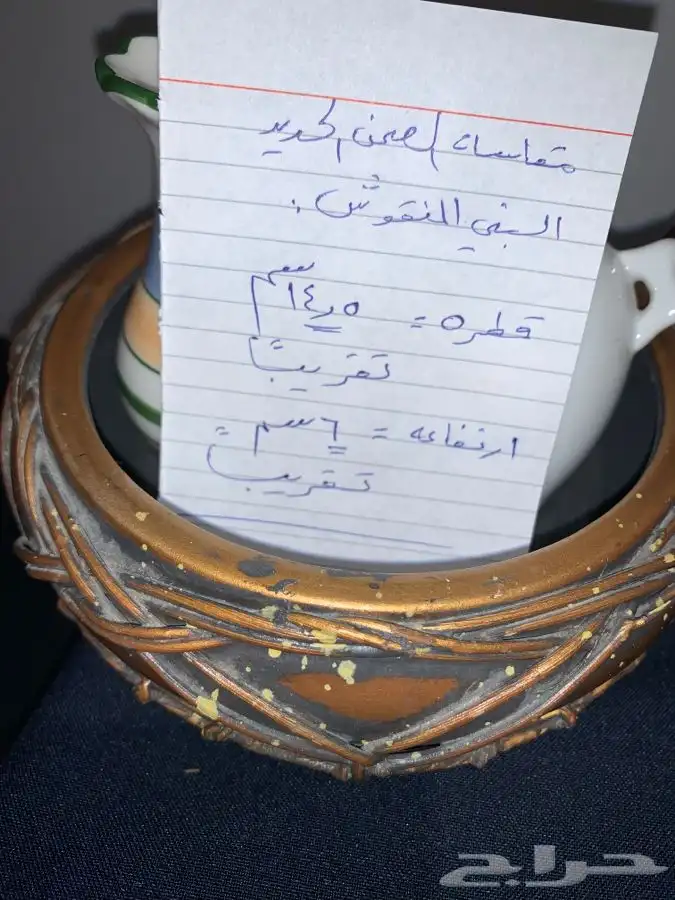 مقاسات الصحن الحديد
البني المنقوش:
قطره = ١٤٫٥ سم
تقريبًا
ارتفاعه = ٦ سم
تقريبًا
حراج